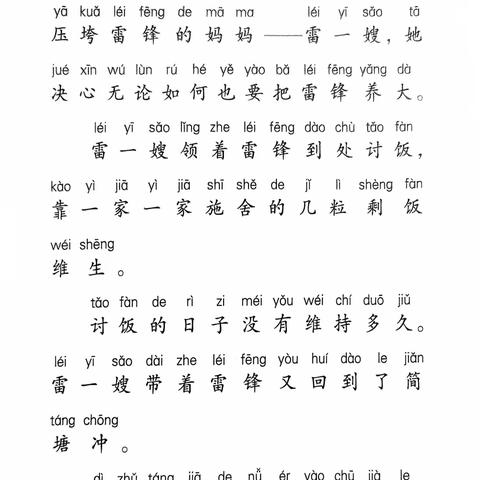 yā kuǎ léi fēng de mā ma léi yī sǎo tā
压垮雷锋的妈妈——雷一嫂，她
jué xīn wú lùn rú hé yě yào bǎ léi fēng yǎng dà
决心无论如何也要把雷锋养大。
léi yī sǎo lǐng zhe léi fēng dào chù tǎo fàn
雷一嫂领着雷锋到处讨饭，
kào yì jiā yì jiā shī shě de jǐ lì shèng fàn
靠一家一家施舍的几粒剩饭
wéi shēng
维生。
tǎo fàn de rì zi méi yǒu wéi chí duō jiǔ
讨饭的日子没有维持多久。
léi yī sǎo dài zhe léi fēng yòu huí dào le jiǎn
雷一嫂带着雷锋又回到了简
táng chōng
塘冲。
dì zhǔ táng jiā de nǚ ér yào chū jià le